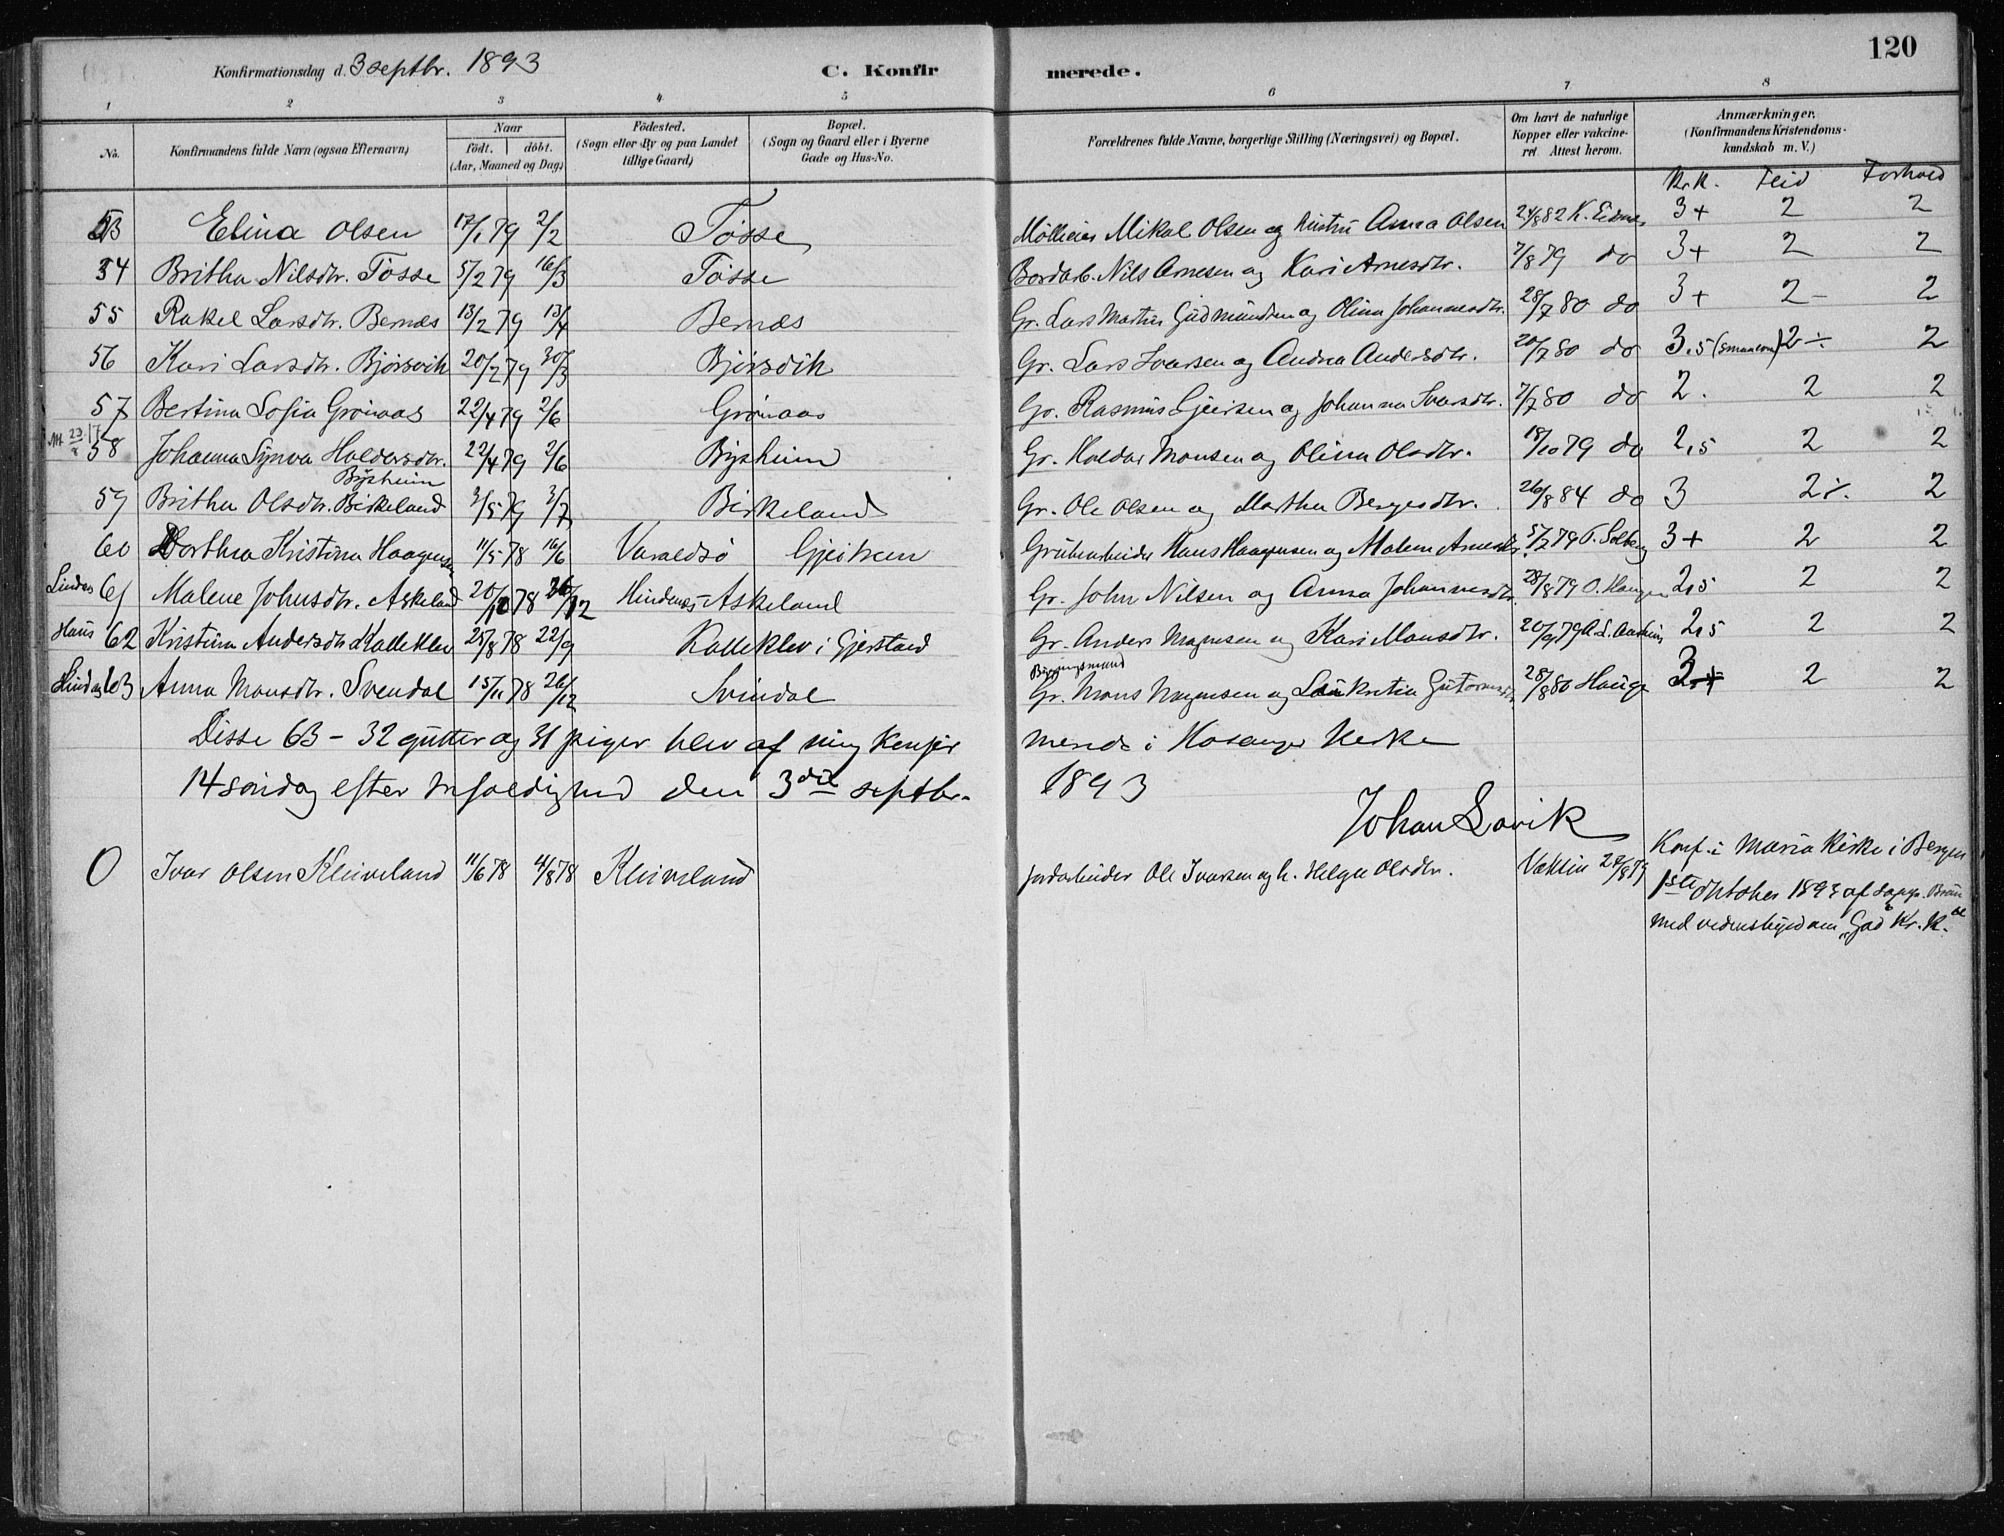 120
Konfirmationsdag d. 3 septbr. 1893 C. Konfir merede.
1 2 3 4 5 6 7 8
No. Konfirmandens fulde Navn (ogsaa Efternavn) Naar Födt. döbt. (Aar, Maaned og Dag) Födested. (Sogn eller By og paa Landet tillige Gaard) Bopæl. (Sogn og Gaard eller i Byerne Gade og Hus-No. Forældrenes fulde Navne, borgerlige Stilling (Næringsvei) og Bopæl. Om havt de naturlige Kopper eller vakcineret. Attest herom. Anmærkninger. (Konfirmandens Kristendomskundskab m. V.)
Kr.K. Flid Forhold
53 Elina Olsen 17/1 79 2/2 Tösse Mölleier Mikal Olsen og Hustru Anna Olsen 24/8 82 K. 3+ 2 2
54 Britha Nilsdtr. Tösse 5/2 79 16/3 Tösse Bordarb. Nils Arnesen og Kari Arnesdtr. 7/8 79 do 3+ 2 2
55 Rakel Larsdtr. Bernæs 13/2 79 13/4 Bernæs Gr. Lars Martin Gudmundsen og Olina Johannesdtr. 28/7 80 do 3+ 2- 2
56 Kari Larsdtr. Bjørsvik 20/2 79 30/3 Bjørsvik Gr. Lars Ivarsen og Andrea Andersdtr. 20/7 80 do 3.5 2÷ 2
57 Bertina Sofia Grønaas 22/4 79 2/6 Grønaas Gr. Rasmus Gjertsen og Johanna Ivarsdtr. 7/7 80 do 2. 2 2
58 Johanna Synva Haldorsdtr. Bysheim 22/4 79 2/6 Bysheim Gr. Haldor Monsen og Olina Olsdtr. 18/10 79 do 2,5 2 2
59 Britha Olsdtr. Birkeland 3/5 79 3/7 Birkeland Gr. Ole Olsen og Martha Bergesdtr. 26/8 84 do 3 2÷ 2
60 Dorthea Kristina Haagensen 11/5 78 16/6 Varaldsö Gjeitren Grubearbeider Hans Haagensen og Malene Arnesdtr. 5/7 79 T. Solberg 3+ 2 2
Lindaas 61 Malene Johnsdtr. Askeland 20/10 78 26/12 Hindenes Askeland Gr. John Nilsen og Anna Johannesdtr. 28/8 79 O. Haugen 2,5 2 2
Haus 62 Kristina Andersdtr. Kalleklev 25/8 78 22/9 Kalleklev i Gjerstad Gr. Anders Magnesen og Kari Monsdtr. 20/9 79 2,5 2 2
63 Anna Monsdtr. Svendal 15/11 78 26/12 Svindal Gr. Mons Magnesen og Laukretia Gutormsdtr. 28/8 80 Hauge 3 2 2
Disse 63 - 32 gutter og 31 piger blev af mig konfir merede i Hosanger Kirke
14 søndag efter trefoldighed den 3die septbr. 1893
Johan Lavik
0 Ivar Olsen Kleiveland 11/6 78 4/8 78 Kleiveland Jordarbeider Ole Ivarsen og h. Helga Olsdtr. Vaksin 27/8 79 Konf. i Maria Kirke i Bergen
1ste oktober 1893 af sogn.
med vidensbyrdem "God Kr.K."